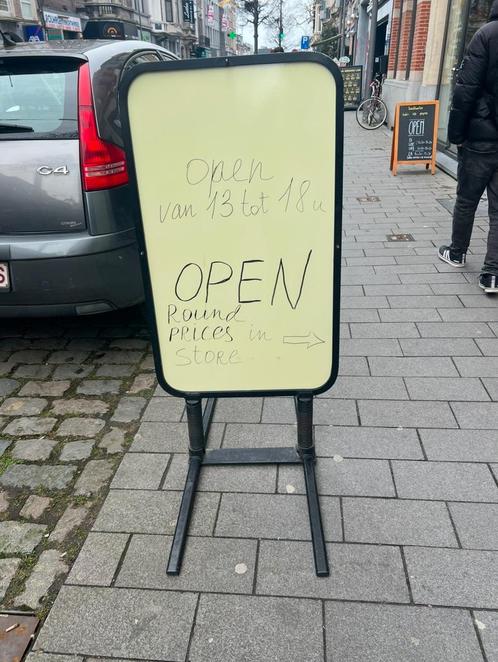 Open
van 13 tot 18 u
OPEN
Round
PRICES in
Store
C4
OPEN